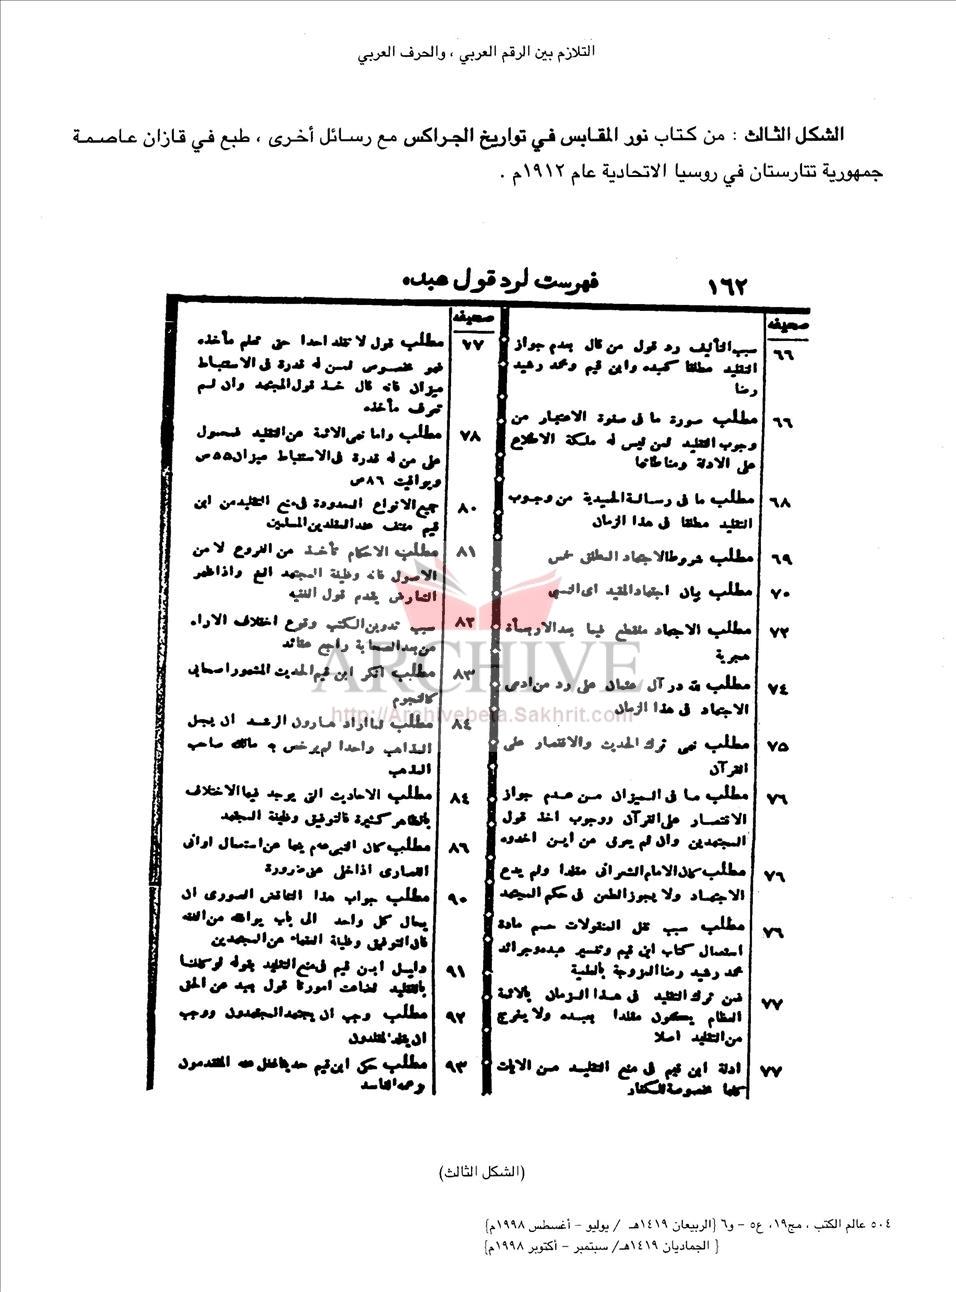 التلازم بين الرقم العربي ، والحرف العربي
الشكل الثالث : من كتاب نور المقابس في تواريخ الجراكس مع رسائل أخرى ، طبع في قازان عاصمة
جمهورية تتارستان في روسيا الاتحادية عام ١٩١٢م .
١٦٢ فهرست لرد قول عبده
صحيفه
٦٦ سبب التأليف رد قول من قال بعدم جواز
التقليد مطلقا كعبده وابن قيم ومحمد رشيد
رضا
٦٦ مطلب صورة ما فى صفوة الاعتبار من
وجوب التقليد لمن ليس له ملكة الاطلاع
على الادلة ومناطاتها
٦٨ مطلب ما فى رسالة الحميدية من وجوب
التقليد مطلقا فى هذا الزمان
٦٩ مطلب شروط الاجتهاد المطلق خمس
٧٠ مطلب بيان اجتهاد المقيد اى النسبى
٧٢ مطلب الاجتهاد منقطع فيما بعد الاربعمأة
هجرية
٧٤ مطلب لله در آل عثمان على رد من ادعى
الاجتهاد فى هذا الزمان
٧٥ مطلب نهى ترك الحديث والاقتصار على
القرآن
٧٦ مطلب ما فى الميزان من عدم جواز
الاقتصار على القرآن ووجوب اخذ قول
المجتهدين وان لم يعرف من اين اخذوه
٧٦ مطلب كان الامام الشعرانى مقلدا ولم يدع
الاجتهاد ولا يجوز الطعن فى حكم المجتهد
٧٦ مطلب سبب نقل المنقولات حسم مادة
استعمال كتاب ابن قيم وتفسير عبده وجرائد
محمد رشيد رضا
٧٧ فمن ترك التقليد فى هذا الزمان بالائمة
العظام يكون مقلدا بعبده ولا يخرج
من التقليد اصلا
٧٧ ادلة ابن قيم فى منع التقليد من الايات
كلها مخصوصة للكفار
صحيفه
٧٧ مطلب قول لا تقلد احدا حتى تعلم مأخذه
فهو مخصوص لمن له قدرة فى الاستنباط
ميزان فانه قال خذ قول المجتهد وان لم
تعرف مأخذه
٧٨ مطلب واما نهى الائمة عن التقليد فمحمول
على من له قدرة فى الاستنباط ميزان ٥٥ ص
ويواقيت ٨٦ ص
٨٠ جميع الانواع المعدودة فى منع التقليد من ابن
قيم منتف عند المقلدين المسلمين
٨١ مطلب الاحكام تأخذ من الفروع لا من
الاصول فانه وظيفة المجتهد الخ واذا ظهر
التعارض يقدم قول الفقيه
٨٢ سبب تدوين الكتب وقوع اختلاف الاراء
من بعد الصحابة راجع عقائد
٨٣ مطلب انكر ابن قيم الحديث المشهور اصحابى
كالنجوم
٨٤ مطلب لما اراد هارون الرشد ان يجعل
المذاهب واحدا لم يرخص به مالك صاحب
المذهب
٨٤ مطلب الاحاديث التى يوجد فيها الاختلاف
بالظاهر كثيرة فالتوفيق وظيفة المجتهد
٨٦ مطلب كان النبى عم ينها عن استعمال اوانى
النصارى اذا خلى عن ضرورة
٩٠ مطلب جواب هذا التناقض الصورى ان
يحال كل واحد الى باب يوافقه من الفقه
فان التوفيق وظيفة الفقهاء عن المجتهدين
٩١ دليل ابن قيم فى منع التقليد بقوله لو كلفنا
بالتقليد لضاعت امورنا قول بعيد عن الحق
٩٢ مطلب وجب ان يجتهد المجتهدون ووجب
ان يقلد المقلدون
٩٣ مطلب حكى ابن قيم حديثا غفل عنه المتقدمون
وعمه الفاسد
ARCHIVE
http://Archivebeta.Sakhrit.com
(الشكل الثالث)
٥٠٤ عالم الكتب ، مج١٩، ع٥ - و٦ {الربيعان ١٤١٩هـ / يوليو - أغسطس ١٩٩٨م}
{ الجماديان ١٤١٩هـ/ سبتمبر - أكتوبر ١٩٩٨م}